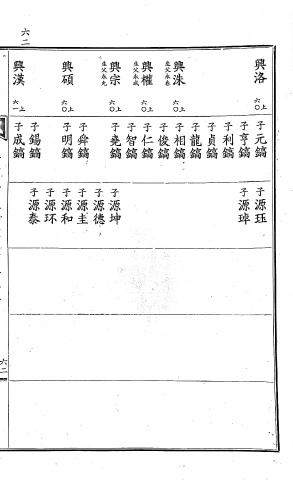 六二
興洛 上六〇
子元鎬 子源珏
子亨鎬 子源琸
子利鎬
子貞鎬
子龍鎬
興洙 生父永泰 上六〇
子相鎬
子俊鎬
興權 生父永成
子仁鎬
子智鎬
興宗 生父永九 上六〇
子堯鎬 子源坤
子源德
子舜鎬 子源圭
興碩 上六〇
子明鎬 子源和
子源环
子錫鎬 子源泰
興漢 上六一
子成鎬
六二